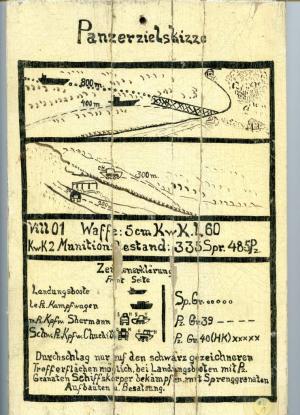 Panzerzielskizze
800m
400m
300m
300m
VIII 01 Waffe: 5cm KwK. L 60
KwK 2 Munitionsbestand: 335 Spr. 485 Pz
Zeichenerklärung
Front Seite
Landungsboote
le Pz. Kampfwagen
m Pz Kpfw Shermann
Schw. Pz. Kpfw. Churchill
Sp. Gr. ooooo
Pz Gr 39 -----
Pz Gr 40 (HK) xxxxx
Durchschlag nur auf den schwarz gezeichneten
Trefferflächen möglich, bei Landungsbooten mit Pz
Granaten Schiffskörper bekämpfen, mit Sprenggranaten
Aufbauten u. Besatzung.